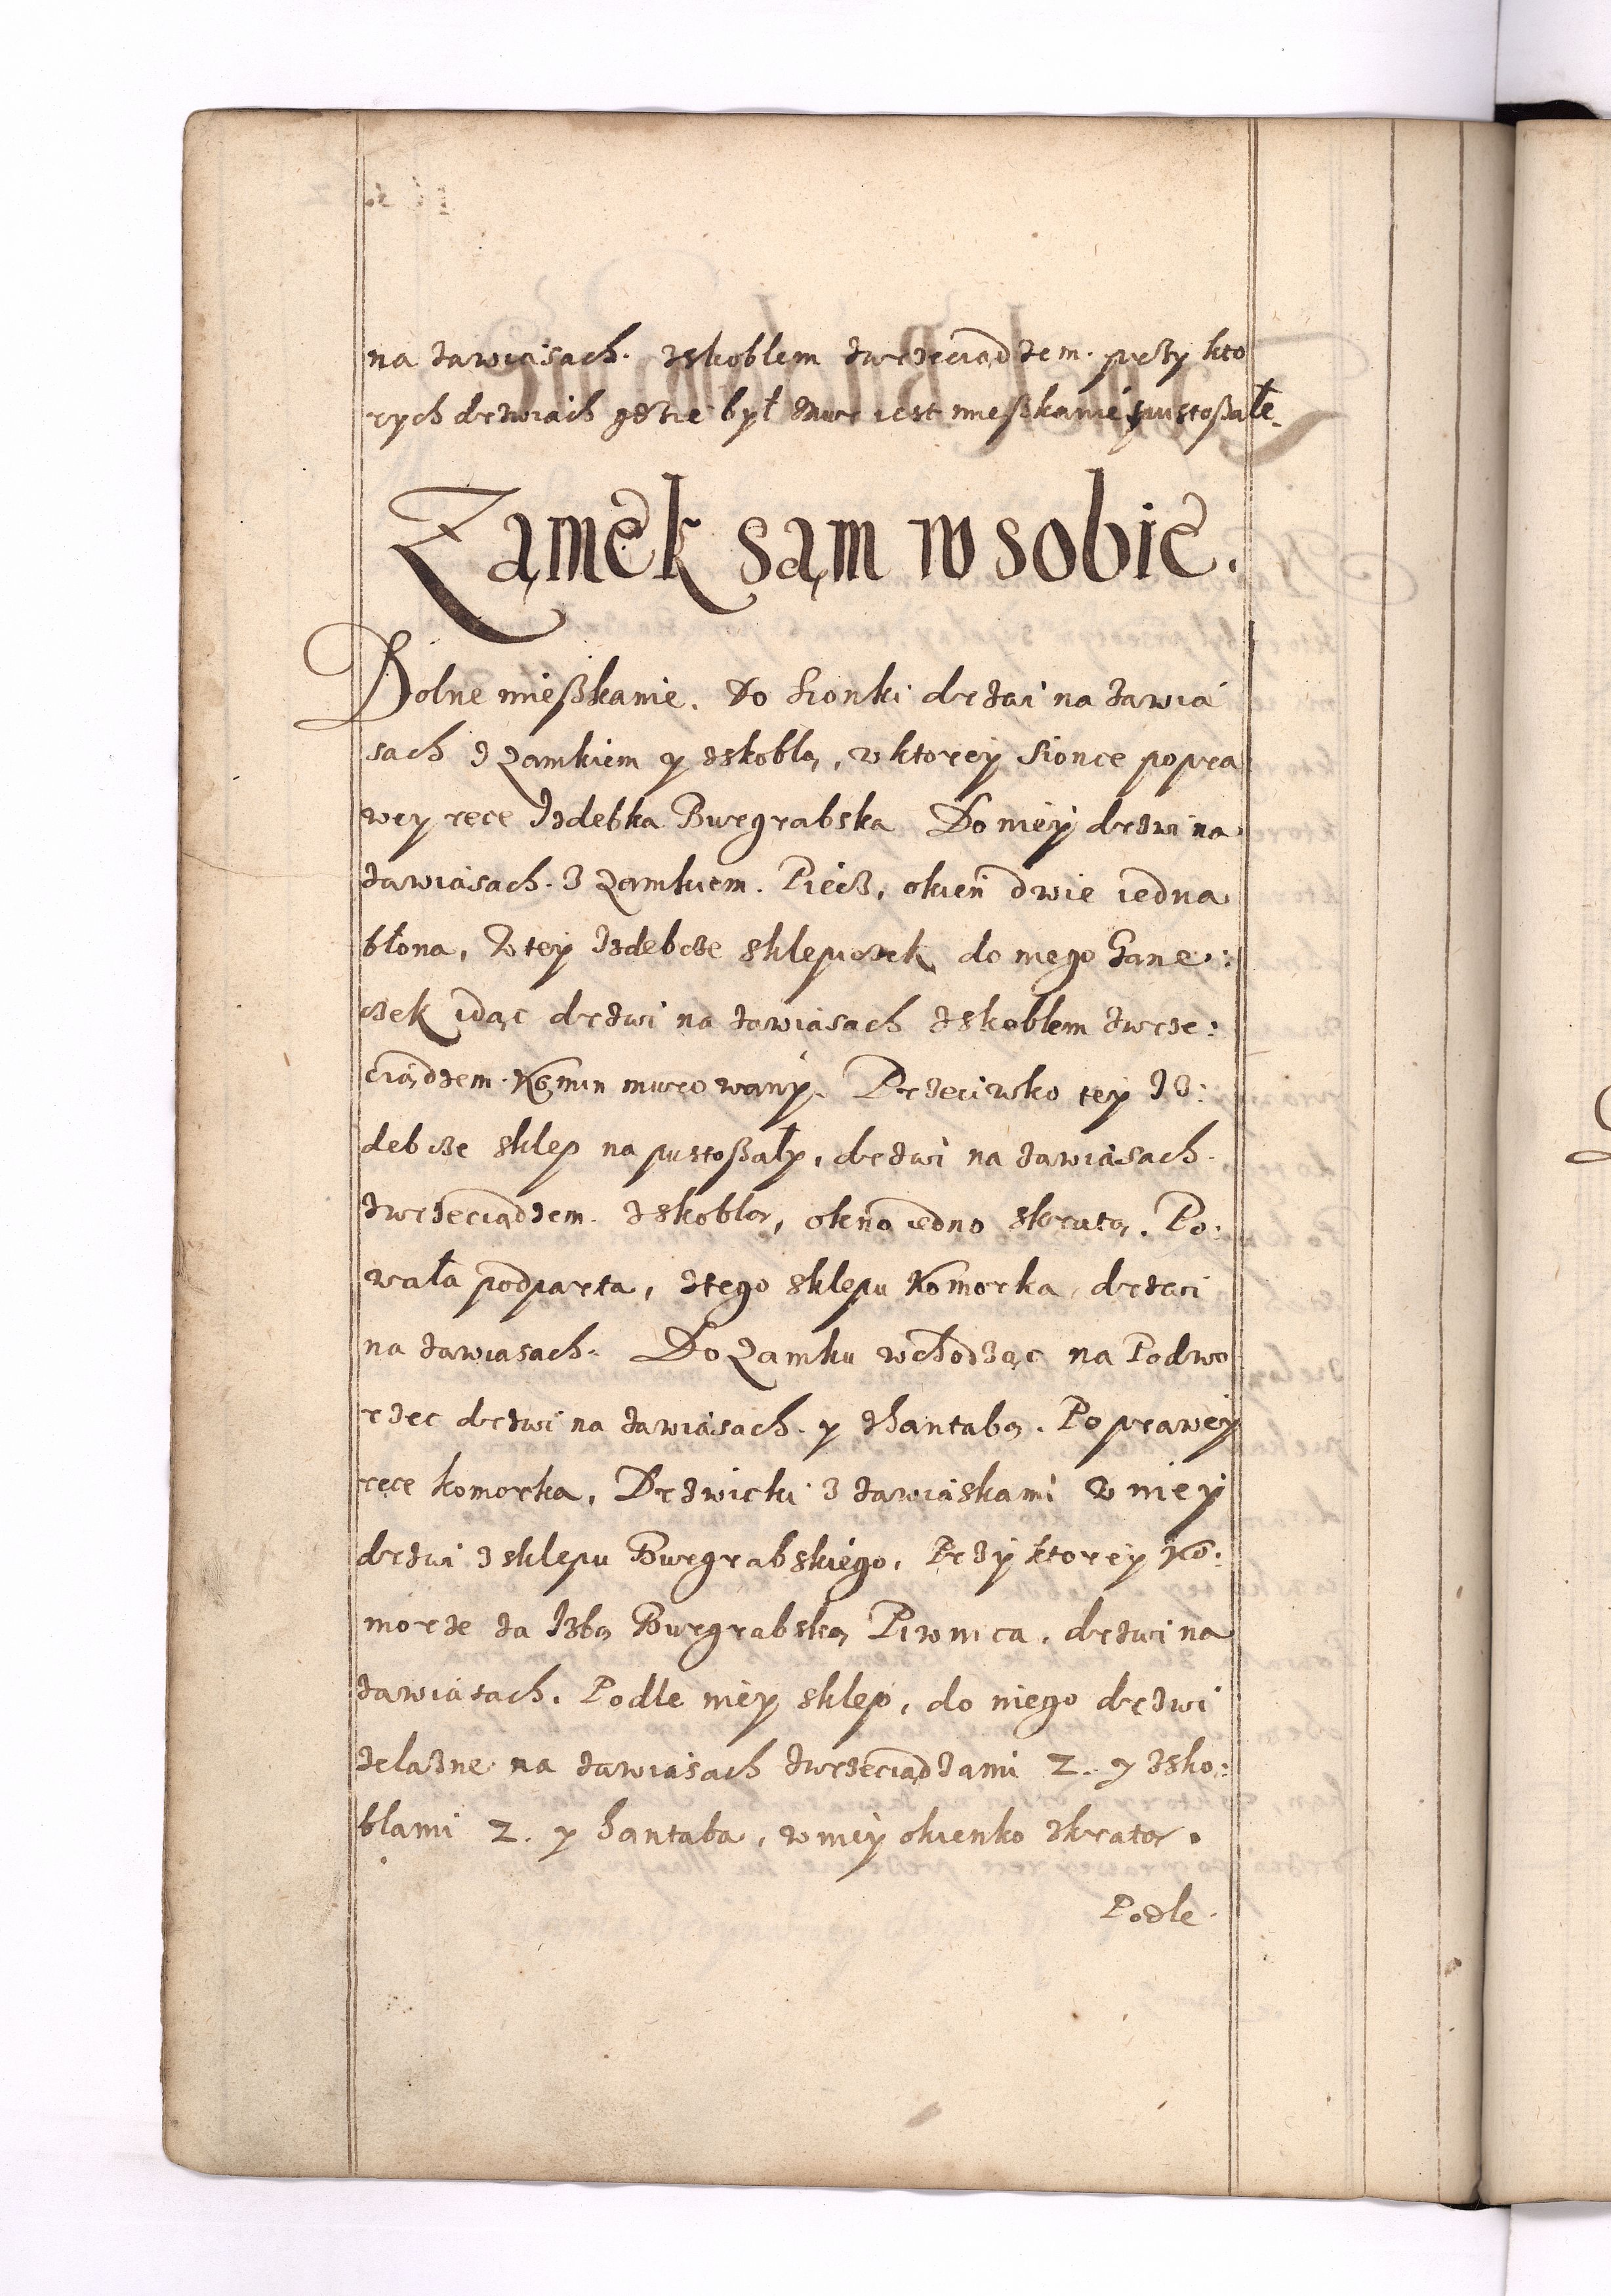 na zawiasach. zskoblem zwrzeciądzem. przy kto
rych drzwiach gdzie był mur iest mießkanie spustoßałe.
Zamek sam w sobie.
Dolne mießkanie. Do Sionki drzwi na zawia
sach z zamkiem y zskoblą, w ktorey sionce popra
wey ręce Izdebka Burgrabska Do niey drzwi na
zawiasach. z zamkiem. Piecz, okien dwie iedna
błona, w tey Izdebcze sklepiczek do niego Gane:
czek idąc drzwi na zawiasach zskoblem zwrze:
ciądzem. Komin murowany. Przeciwko tey Iz:
debcze sklep na pustoßały, drzwi na zawiasach.
zwrzeciądzem. zskoblą, okno iedno skratą. Po:
wała podparta, ztego sklepu Komorka, drzwi
na zawiasach. Do zamku wchodząc na Podwo
rzec drzwi na zawiasach. y zhantabą. Po prawey
ręce komorka, Drzwiczki z zawiaskami w niey
drzwi z sklepu Burgrabskiego, Przy ktorey Ko:
morze za Izbą Burgrabską Piwnica, drzwi na
zawiasach. Podle niey sklep, do niego drzwi
żelazne na zawiasach zwrzeciądzami 2. y zsko:
blami 2. y hantaba, w niey okienko zkratą.
Podle.